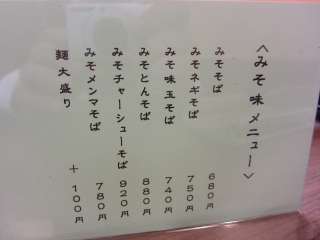 ＜みそ味メニュー＞
みそそば 680円
みそネギそば 750円
みそ味玉そば 740円
みそとんそば 880円
みそチャーシューそば 920円
みそメンマそば 780円
麺大盛り ＋100円